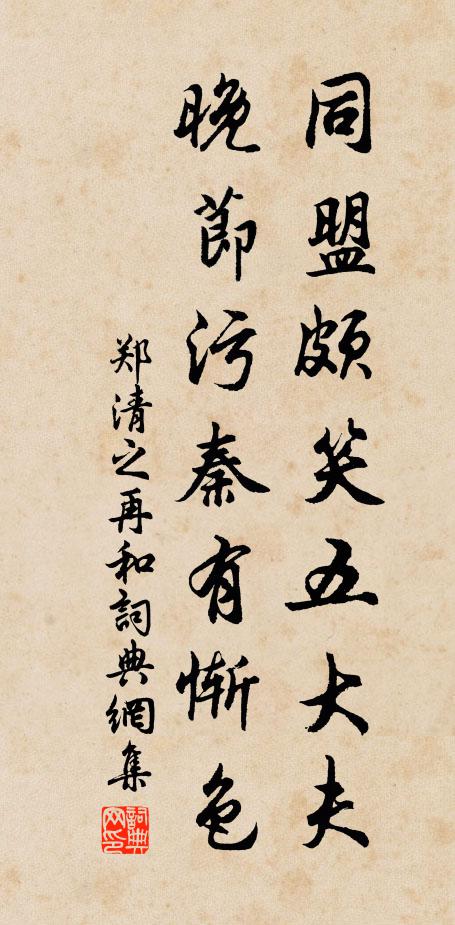 同盟頗笑五大夫
晚節污秦有慚色
郑清之再和詞典網集
詞典网印